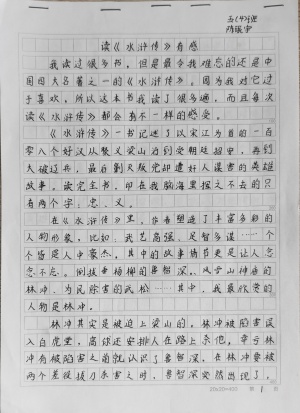 五(4)班
读《水浒传》有感
我读过很多书，但是最令我难忘的还是中
国四大名著之一的《水浒传》。因为我对它过
于喜欢，所以这本书我读了很多遍，而且每次
读《水浒传》都会有不一样的感受。
《水浒传》一书记述了以宋江为首的一百
零八个好汉从聚义梁山泊到受朝廷招安，再到
大破辽兵，最后剿灭叛党却遭奸人谋害的英雄
故事。读完全书，印在我脑海里挥之不去的只
有两个字：忠、义。
在《水浒传》里，作者塑造了丰富多彩的
人物形象，比如：武艺高强、足智多谋……个
个皆是人中豪杰，其中的故事情节更是让人念
念不忘。倒拔垂杨柳的鲁智深，风雪山神庙的
林冲，为民除害的武松……其中，我最欣赏的
人物是林冲。
林冲其实是被迫上梁山的。林冲被陷害误
入白虎堂，高俅还安排人在路上杀他，幸亏林
冲有被陷害之前就认识了鲁智深，在林冲要被
两个差役拔刀杀害之时，鲁智深突然出现了，
20×20=400
第1页